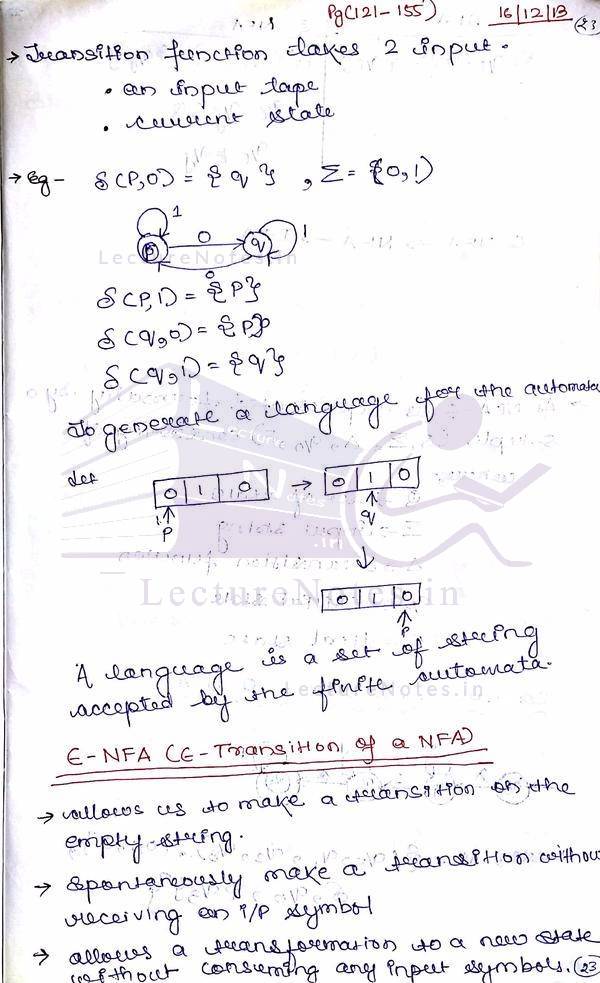 Pg(121-155) 16/12/13
→ Transition function takes 2 input.
• an input tape
• current state
→ Eg - δ(P,0) = {q} , Σ = {0,1)
1
0
1
P q
0
LectureNotes.in
δ(P,1) = {P}
δ(q,0) = {P}
δ(q,1) = {q}
To generate a language for the automata
let
0 1 0 → 0 1 0
P q
0 1 0
P
LectureNotes.in
A language is a set of string
accepted by the finite automata.
LectureNotes.in
E-NFA (E-Transition of a NFA)
→ allows us to make a transition on the
empty string.
→ Spontaneously make a transition without
receiving an i/p symbol
→ allows a transformation to a new state
without consuming any input symbols. 23